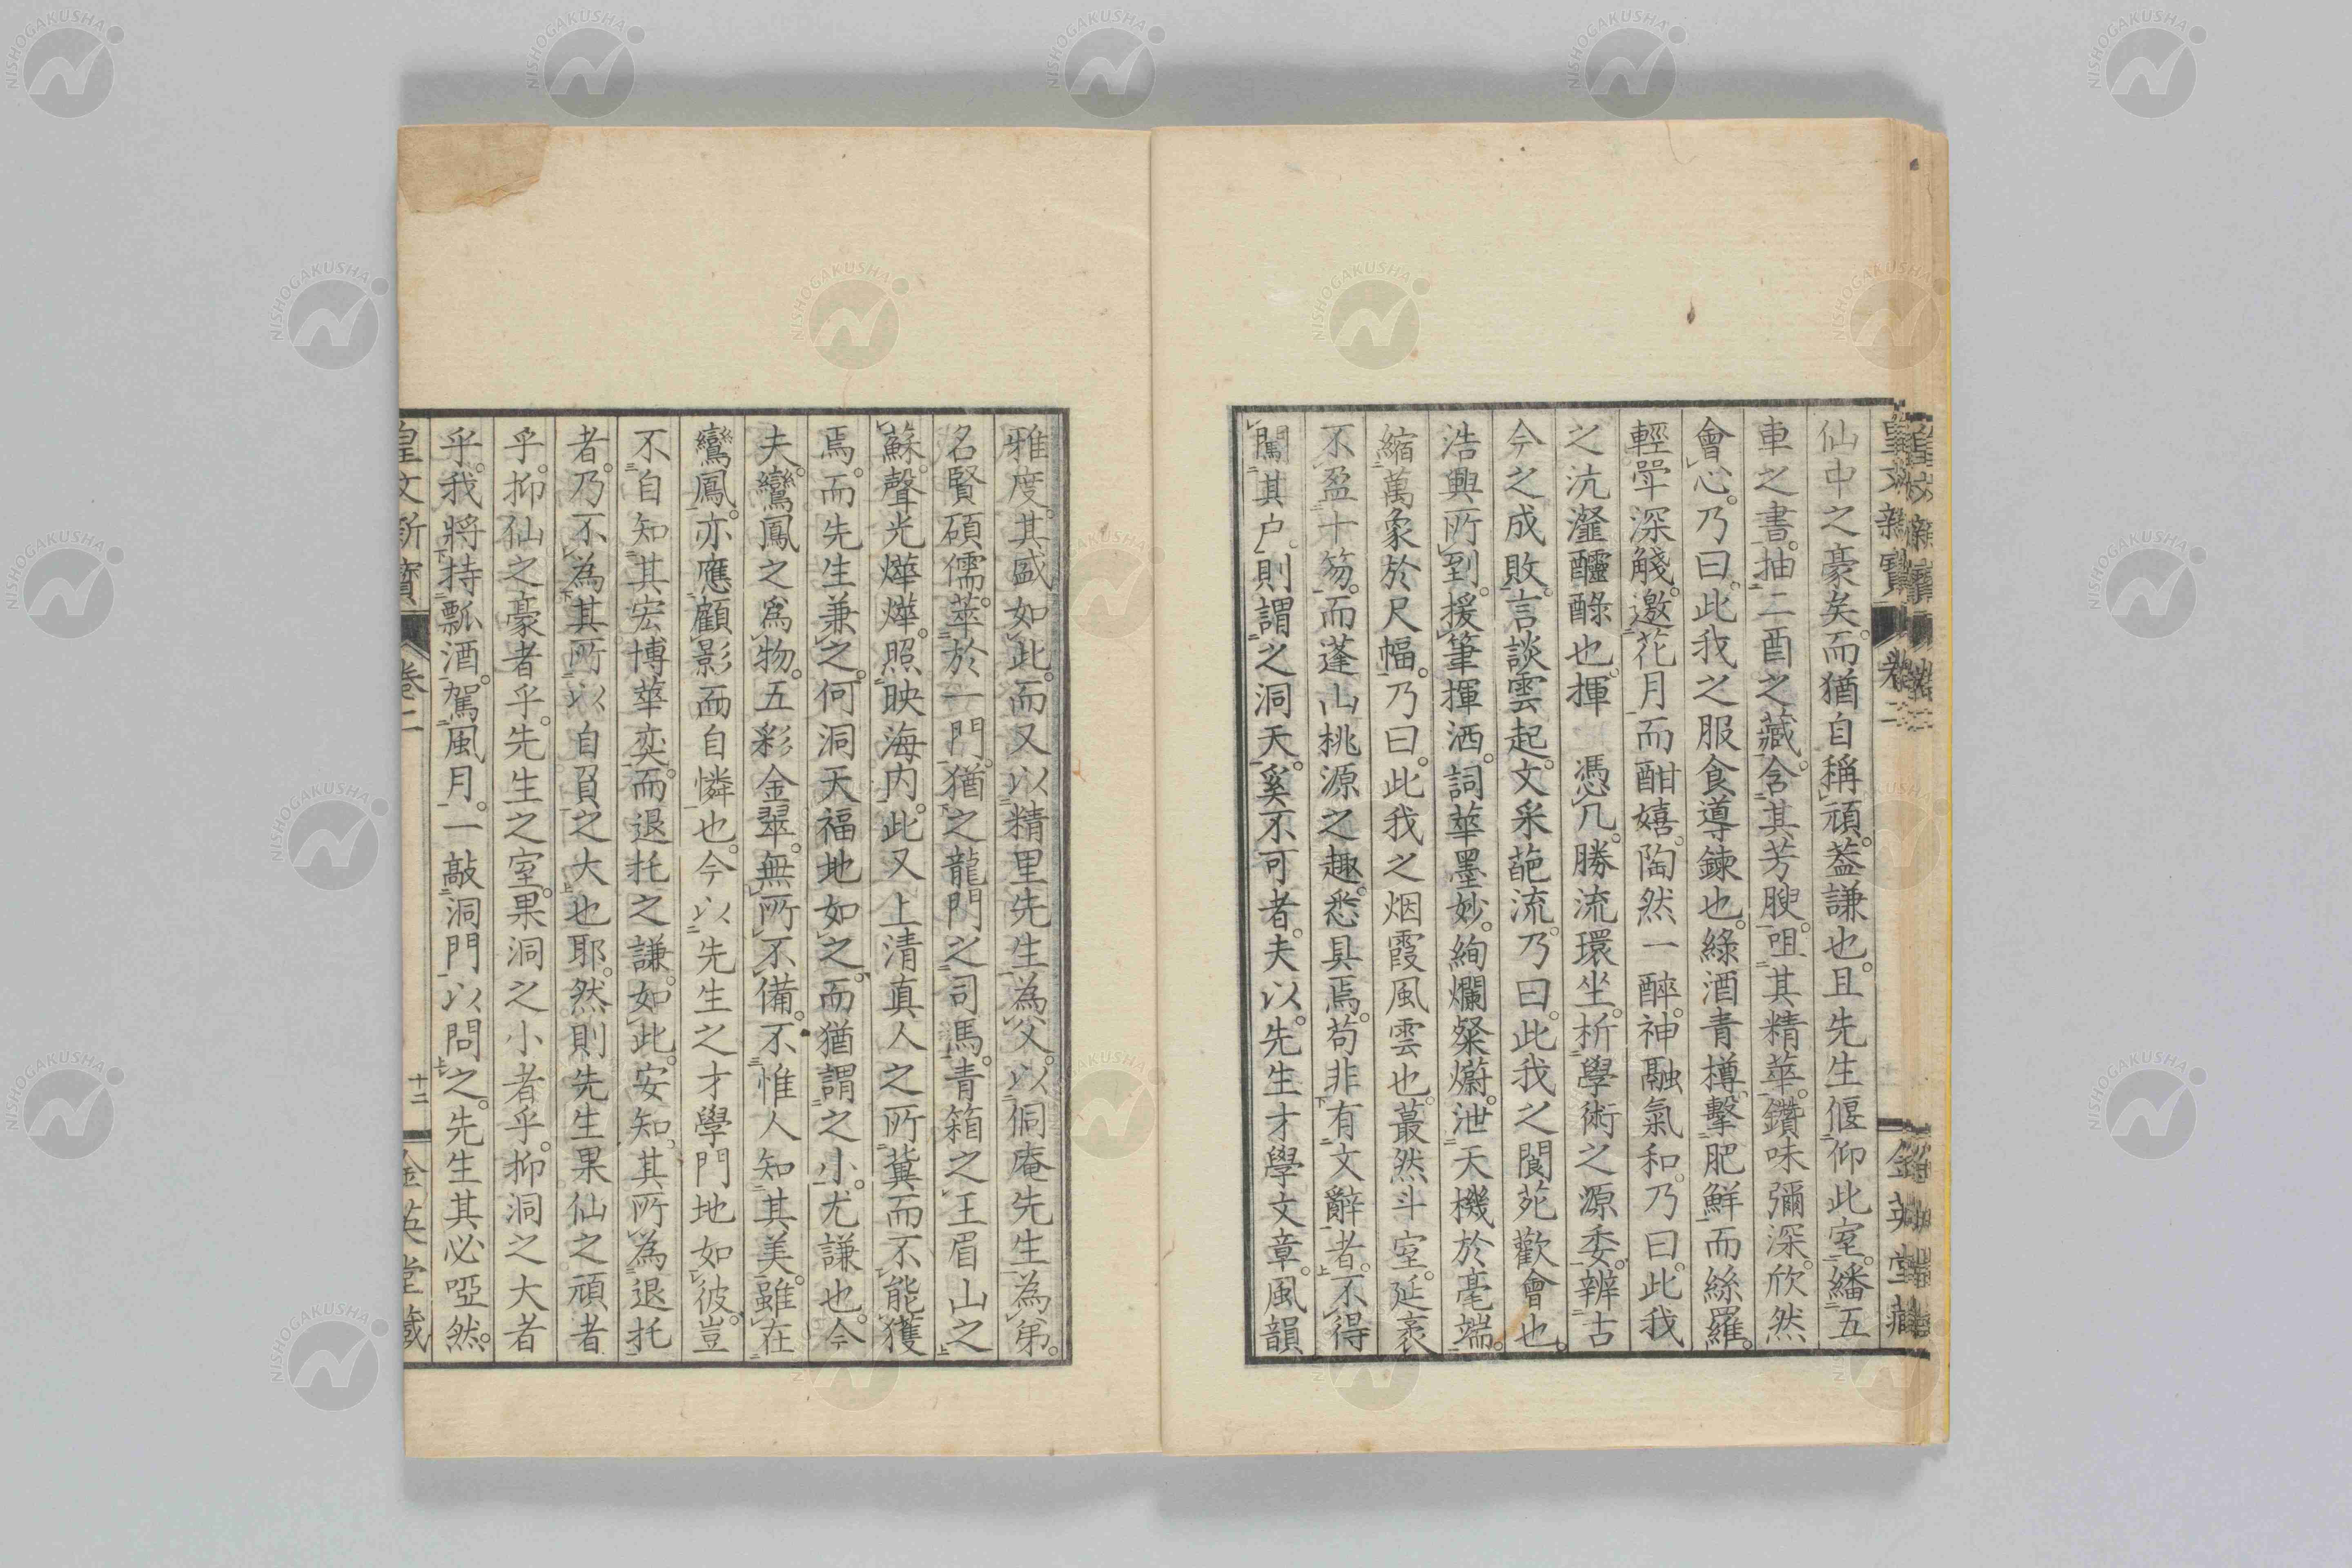 仙中之豪矣。而猶自稱頑。葢謙也。且先生偃仰此室。繙五
車之書。抽二酉之藏。含其芳腴。咀其精華。鑽味彌深。欣然
會心。乃曰。此我之服食導鍊也。綠酒青樽。擊肥鮮而絲羅。
輕斝深觴。邀花月而酣嬉。陶然一醉。神融氣和。乃曰。此我
之沆瀣醽醁也。揮 憑几。勝流環坐。析學術之源委。辨古
今之成敗。言談雲起。文釆葩流。乃曰。此我之閬苑歡會也。
浩興所到。援筆揮洒。詞華墨妙。絢爛粲蔚。泄天機於毫端。
縮萬象於尺幅。乃曰。此我之烟霞風雲也。蕞然斗室。延袤
不盈十笏。而蓬山桃源之趣。悉具焉。苟非有文辭者。不得
闖其户。則謂之洞天。奚不可者。夫以先生才學文章。風韻
雅度。其盛如此。而又以精里先生為父。以侗庵先生為弟。
名賢碩儒。萃於一門。猶之龍門之司馬。青箱之王眉山之
蘇。聲光燁燁。照映海内。此又上清真人之所冀而不能獲
焉。而先生兼之。何洞天福地如之。而猶謂之小。尤謙也。今
夫鸞鳳之為物。五彩金翠。無所不備。不惟人知其美。雖在
鸞鳳。亦應顧影而自憐也。今以先生之才學門地如彼。豈
不自知其宏博華奕。而退托之謙。如此。安知其所為退托
者。乃不為其所以自負之大也耶。然則先生果仙之頑者
乎。抑仙之豪者乎。先生之室。果洞之小者乎。抑洞之大者
乎。我將持瓢酒。駕風月。一敲洞門以問之。先生其必啞然。
皇文新寶 卷二 十二 金英堂藏
NISHOGAKUSHA